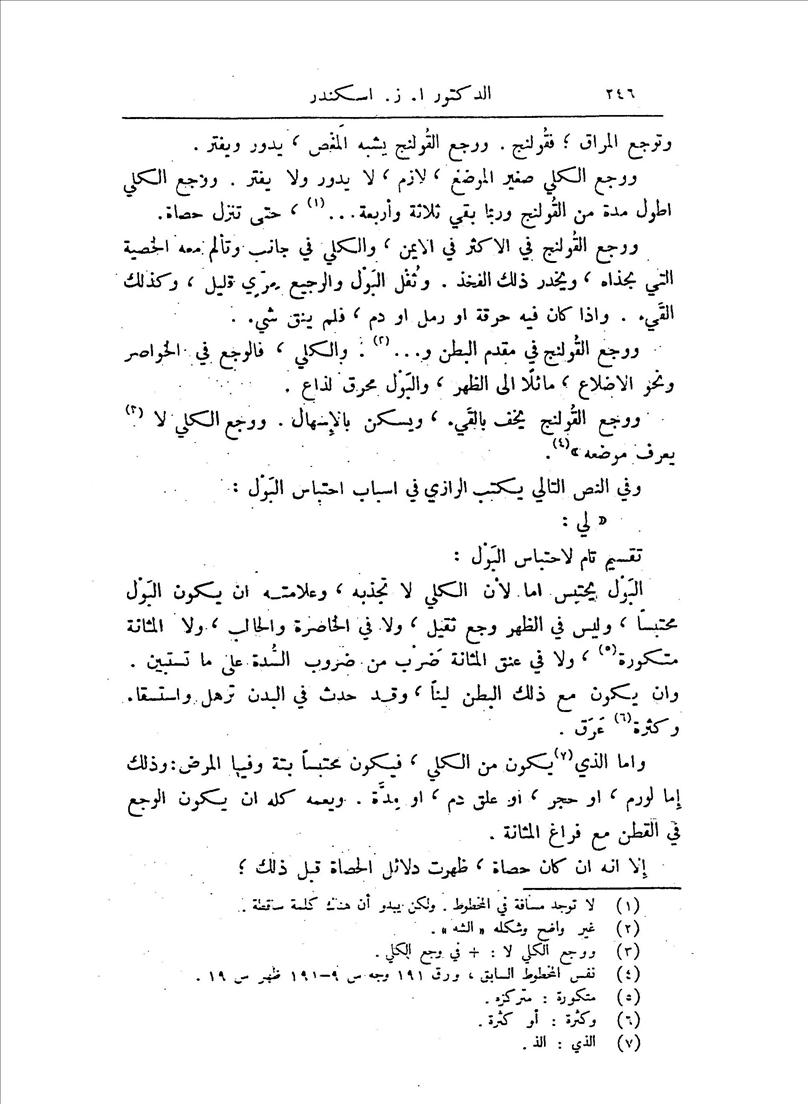 ٢٤٦ الدكتور ا. ز. اسكندر
وترجع المراق ؛ فقُولنج . ووجع القُولنج يشبه المغَص ، يدور ويفتر .
ووجع الكلي صغير الموضع ، لازم ، لا يدور ولا يفتر . ووجع الكلي
اطول مدة من القُولنج وربما بقي ثلاثة وأربعة...(١) ، حتى تنزل حصاة.
ووجع القُولنج في الاكثر في الايمن ، والكلي في جانب وتألم معه الخصية
التي بحذاه ، ويخدر ذلك الفخذ . وثُفل البَوْل والرجيع مرّي قليل ، وكذلك
القيء . واذا كان فيه حرقة او رمل او دم ، فلم ينق شيء .
ووجع القُولنج في مقدم البطن و...(٢) . والكلي ، فالوجع في الخواصر
ونحو الاضلاع ، مائلًا الى الظهر ، والبَوْل محرق لذاع .
ووجع القُولنج يخف بالقيء ، ويسكن بالإسهال . ووجع الكلي لا (٣)
يعرف موضعه »(٤).
وفي النص التالي يكتب الرازي في اسباب احتباس البَوْل :
« لي :
تقسيم تام لاحتباس البَوْل :
البَوْل يحتبس اما لأن الكلي لا تجذبه ، وعلامته ان يكون البَوْل
محتبساً ، وليس في الظهر وجع ثقيل ، ولا في الخاصرة والحالب ، ولا المثانة
متكورة(٥) ، ولا في عنق المثانة ضَرْب من ضروب السُّدة على ما تستبين .
وان يكون مع ذلك البطن ليناً ، وقد حدث في البدن ترهل واستسقاء
وكثرة(٦) عَرَق .
واما الذي(٧) يكون من الكلي ، فيكون محتبساً بتة وفيها المرض: وذلك
إما لورم ، او حجر ، او علق دم ، او مِدَّة . ويعمه كله ان يكون الوجع
في القطن مع فراغ المثانة .
إلا انه ان كان حصاة ، ظهرت دلائل الحصاة قبل ذلك ؛
(١) لا توجد مسافة في المخطوط . ولكن يبدو أن هناك كلمة ساقطة .
(٢) غير واضح وشكله « الشه » .
(٣) ووجع الكلي لا : + في وجع الكلي .
(٤) نفس المخطوط السابق ، ورق ١٩١ وجه س ٩–١٩١ ظهر س ١٩ .
(٥) متكورة : متركزه .
(٦) وكثرة : أو كثرة .
(٧) الذي : الذ .